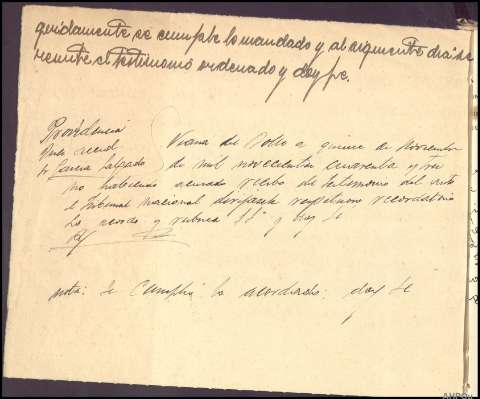 guidamente se cumple lo mandado y al siguiente dia se
remite el testimonio ordenado y doy fe.
Providencia
Juez accdl
Sr Garcia Salgado
Viana del Bollo a quince de Noviembre
de mil novecientos cuarenta y tres
No habiendo acusado recibo de testimonio del auto
el Tribunal Nacional dirijasele respetuoso recordatorio
Lo acordo y rubrica SSª y doy fe
nota: Se Cumplió lo acordado: doy fe